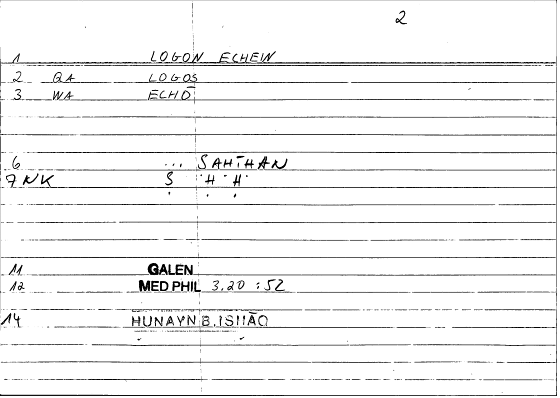 2
1 LOGON ECHEIN
2 QA LOGOS
3 WA ECHŌ
6 ... SAHIHAN
7 NK S H H
11 GALEN
12 MED PHIL 3.20 : 52
14 HUNAYN B. ISHĀQ